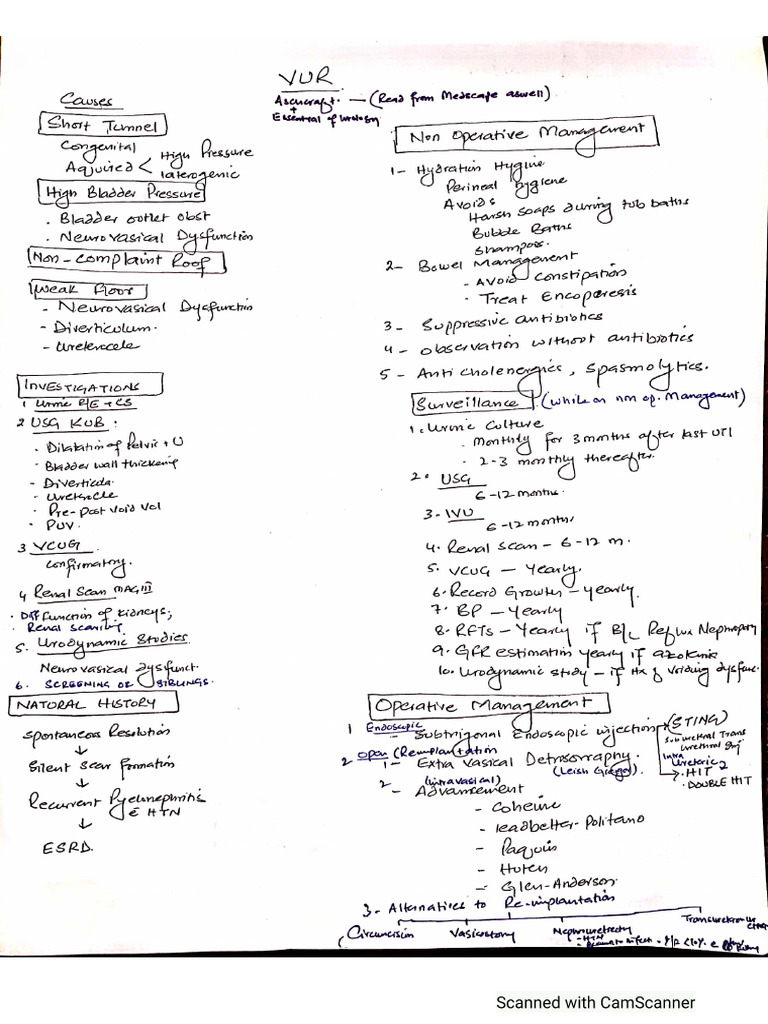 VUR
Ascncraft. — (Read from Medscape aswell)
+
Essential of Urology
Causes
Short Tunnel
Congenital
Aquired < High Pressure
Iaterogenic
High Bladder Pressure
. Bladder outlet obst
. Neurovasical Dysfunction
Non-Complaint Roof
Weak Floor
- Neurovasical Dysfunction
- Diverticulum.
- Ureterocele
INVESTIGATIONS
1 Urine R/E + CS
2 USG KUB:
. Dilatation of Pelvis + U
. Bladder wall thickening
- Diverticula.
- Ureterocele
. Pre-post void vol
. PUV.
3 VCUG
Confirmatory.
4 Renal Scan MAG III
. Diff function of kidneys;
. Renal scarring
5. Urodynamic Studies
Neurovasical dysfunct.
6. SCREENING OF SIBLINGS.
NATURAL HISTORY
Spontaneous Resolution
↓
Silent Scar formation
↓
Recurrent Pyelonephritis
c̄ HTN
↓
ESRD.
Non Operative Management
1- Hydration Hygine
Perineal hygiene
Avoids
Harsh soaps during tub baths
Bubble Baths
Shampoos.
2- Bowel Management
- Avoid Constipation
- Treat Encoperesis
3- Suppressive antibiotics
4- Observation without antibiotics
5- Anti cholenergics, Spasmolytics.
Surveillance (while on non op. Management)
1. Urine Culture
. Monthly for 3 months after last UTI
. 2-3 monthly thereafter.
2. USG
6-12 months.
3. IVU
6-12 months
4. Renal scan - 6-12 m.
5. VCUG - Yearly.
6. Record Growth - yearly.
7. BP - Yearly
8. RFTs - Yearly if B/L Reflux Nephropathy
9. GFR estimation yearly if
10. Urodynamic study - if Hx of Voiding dysfunc.
Operative Management
1 Endoscopic
- Subtrigonal Endoscopic injection (STING)
Sub ureteral Trans
Urethral Inj
Intra
Ureteric
. HIT
. DOUBLE HIT
2 Open (Remplantation
1- Extra Vasical Detrosorraphy.
(Leish Gregol).
2 (intravasical)
- Advancement
- Coheine
- leadbetter-Politano
- Paquin
- Hutch
- Glen-Anderson.
3- Alternatives to Re-implantation
Circumcision Vasicostomy Nephrouretrecty
- HTN